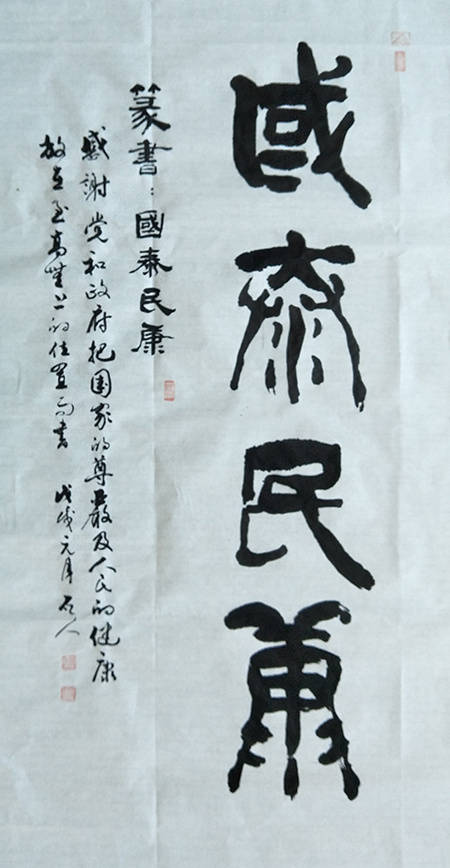 國泰民康
篆書:國泰民康
感謝党和政府把国家的尊嚴及人民的健康
放在至高無上的位置而書 戊戌元月 石人